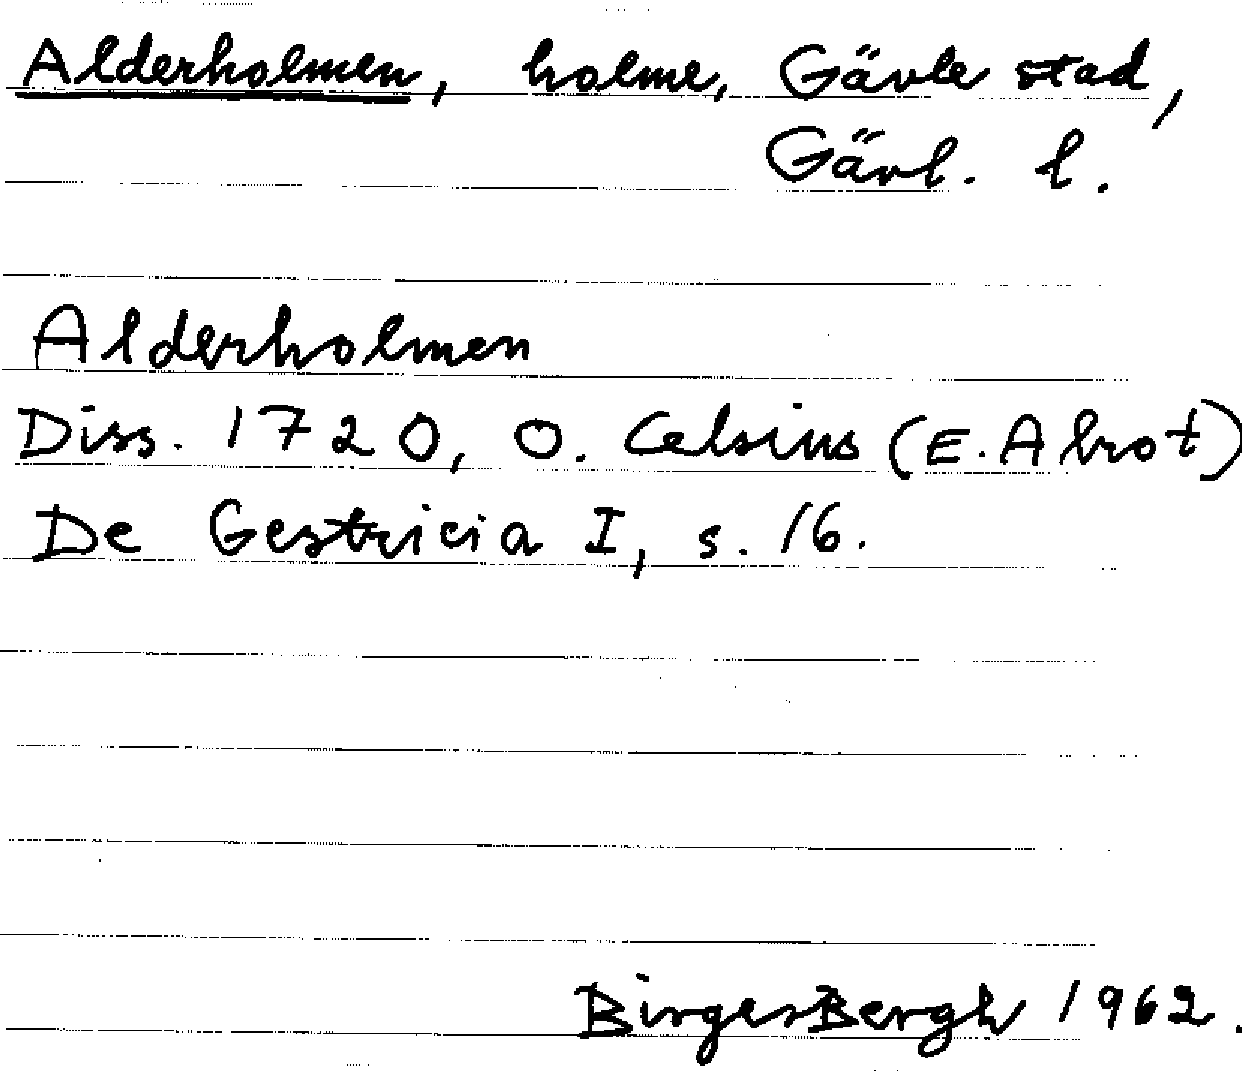 Alderholmen, holme, Gävle stad,
Gävl. l.
Alderholmen
Diss. 1720, O. Celsius (E. Abrot)
De Gestricia I, s. 16.
Birger Bergh 1962.